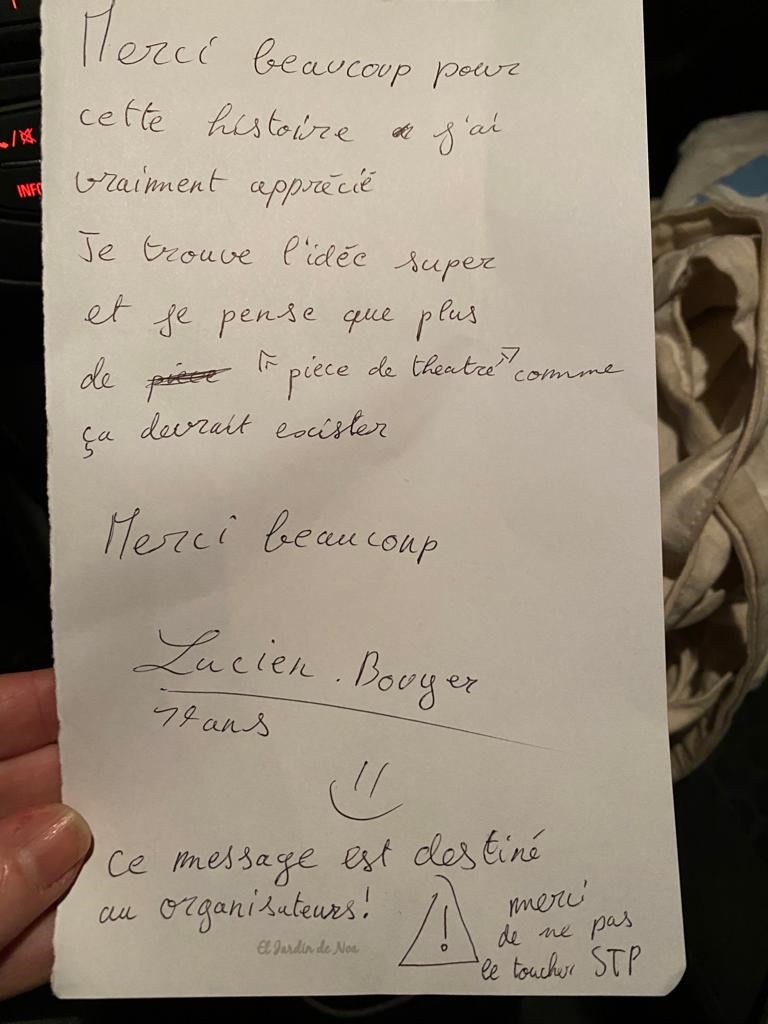 Merci beaucoup pour
cette histoire j'ai
vraiment apprécié
Je trouve l'idée super
et je pense que plus
de pièce "pièce de theatre" comme
ça devrait excister
Merci beaucoup
Lucien. Bouyer
ans
ce message est destiné
au organisateurs!
!
merci
de ne pas
le toucher STP
El Jardin de Noa
INFO